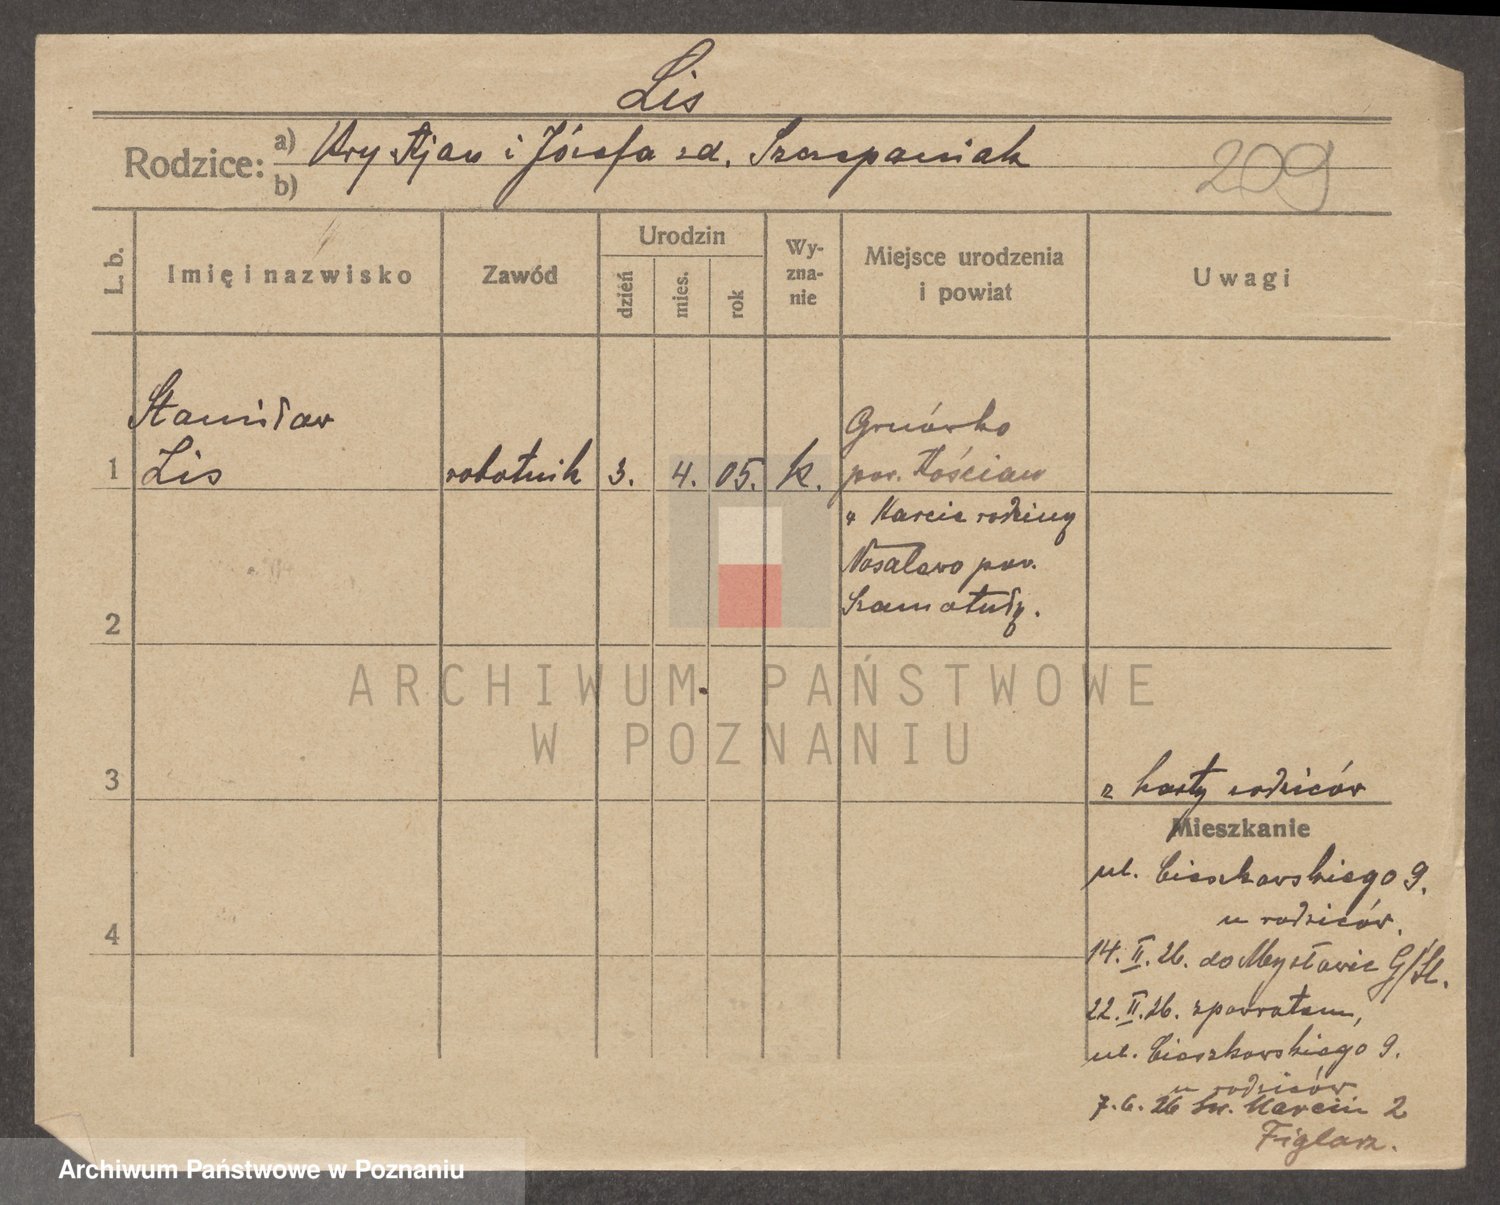 Lis
Rodzice: a) Krystjan i Józefa zd. Szczepaniak
b)
209
L. b.
Imię i nazwisko
Zawód
Urodzin
dzień
mies.
rok
Wy-
zna-
nie
Miejsce urodzenia
i powiat
Uwagi
Stanisław
1 Lis robotnik 3. 4. 05. k.
Gryżówko
pow. Kościan
w Karcie rodziny
Nosalewo pow.
Szamotuły.
2
3
z karty rodziców
Mieszkanie
ul. Cieszkowskiego 9.
u rodziców.
4
14. II. 26. do Mysłowic G/Śl.
22. II. 26. zpowrotem,
ul. Cieszkowskiego 9.
u rodziców
7. 6. 26 Św. Marcin 2
Figlarz.
ARCHIWUM PAŃSTWOWE
W POZNANIU
Archiwum Państwowe w Poznaniu